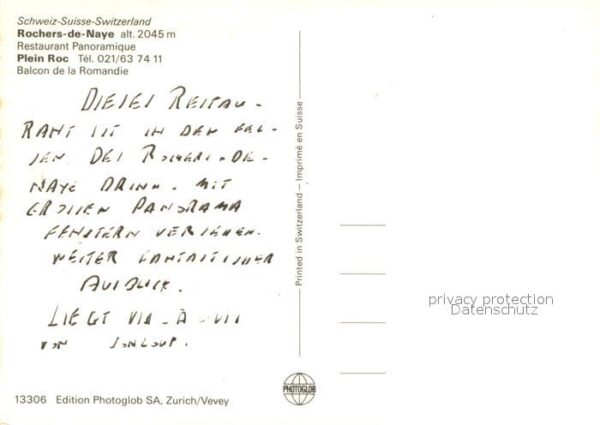 Schweiz-Suisse-Switzerland
Rochers-de-Naye alt. 2045 m
Restaurant Panoramique
Plein Roc Tél. 021/63 74 11
Balcon de la Romandie
DIESES RESTAU-
RANT IST IN DEN FEL-
SEN DES ROCHERS-DE-
NAYE DRINN. MIT
GROSSEN PANORAMA
FENSTERN VERSEHEN.
WEITER FANTASTISCHER
AUSBLICK.
LIEGT VIS-À-VIS
VON SONLOUP.
Printed in Switzerland — Imprimé en Suisse
privacy protection
Datenschutz
PHOTOGLOB
13306 Edition Photoglob SA, Zurich/Vevey